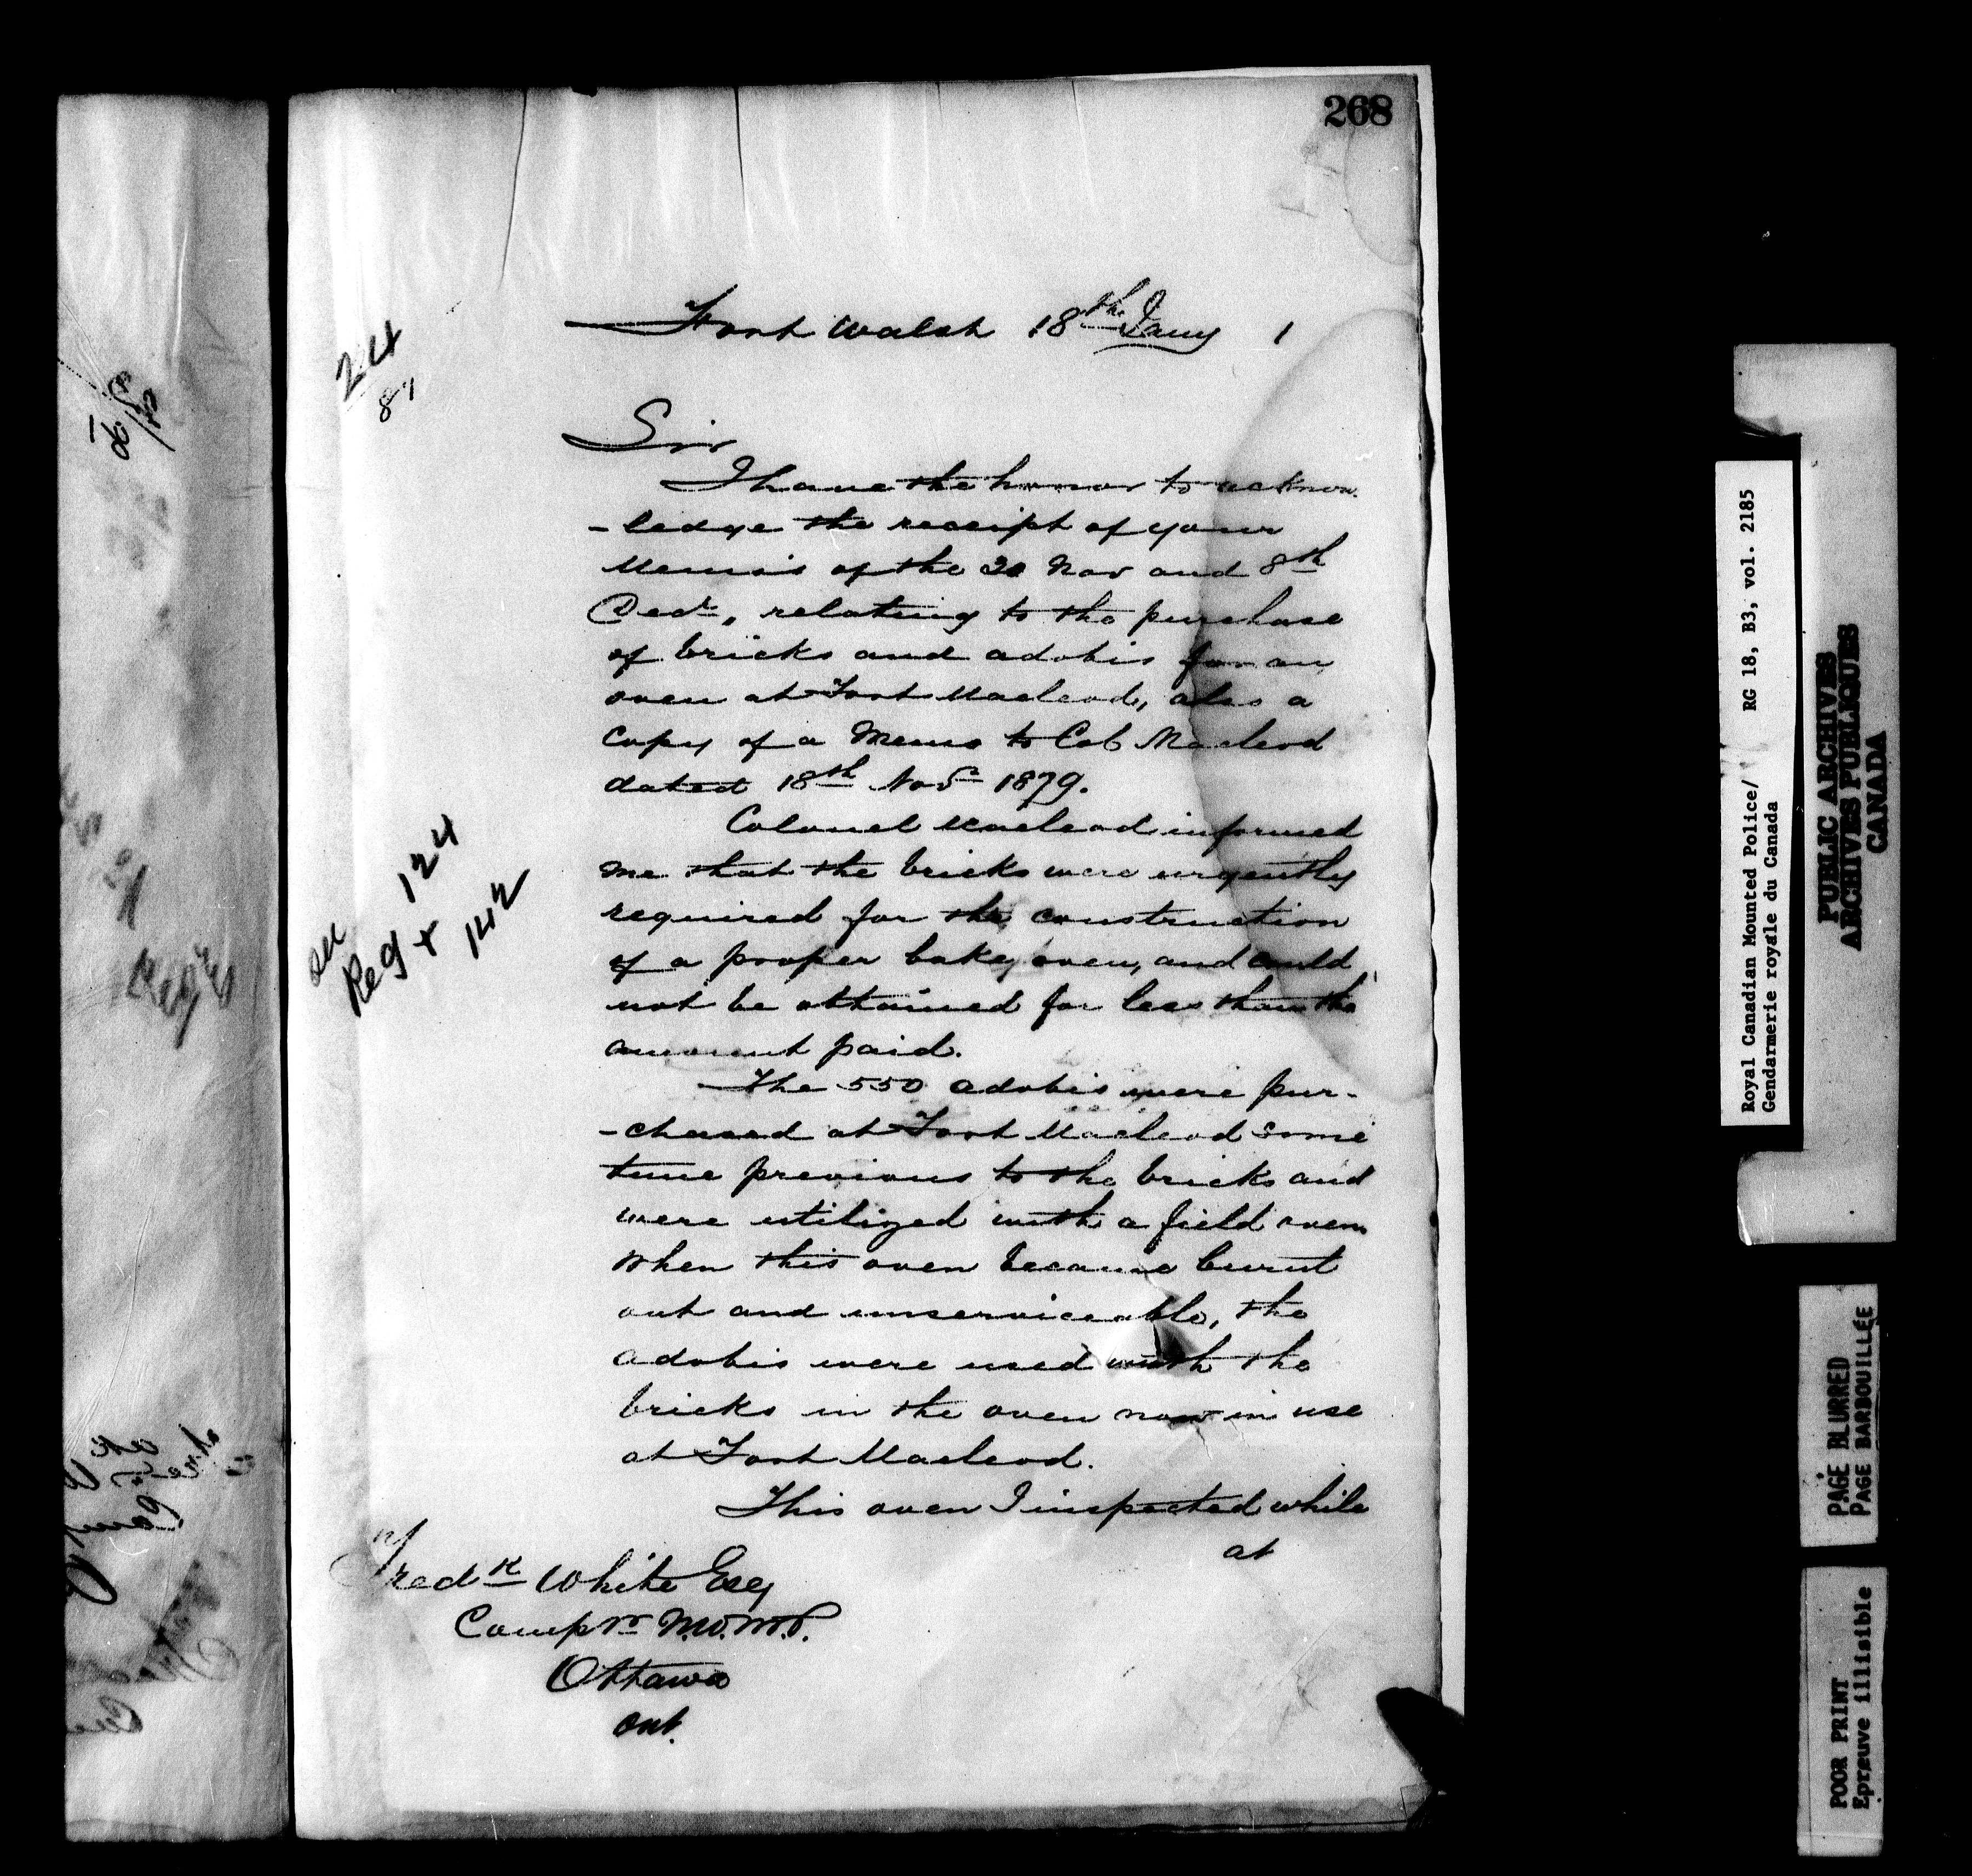 268
Fort Walsh 18th Jany 1
24
81
Sir
I have the honor to acknow
- ledge the receipt of your
Memos of the 30 Nov and 8th
Decr, relating to the purchase
of bricks and adobis for an
oven at Fort Macleod, also a
Copy of a Memo to Col Macleod
dated 18th Novr 1879.
Colonel Macleod informed
me that the bricks were urgently
required for the construction
of a proper bake oven, and could
not be obtained for less than the
amount paid.
The 550 adobis were pur-
- chased at Fort Macleod some
time previous to the bricks and
were utilized with a field oven
When this oven became burnt
out and unserviceable, the
adobis were used with the
bricks in the oven now in use
at Fort Macleod.
This oven I inspected while
at
124
Reg r
142
Fredk White Esq
Compr N.W.M.P.
Ottawa
Ont.
Royal Canadian Mounted Police/ RG 18, B3, vol. 2185
Gendarmerie royale du Canada
PUBLIC ARCHIVES
ARCHIVES PUBLIQUES
CANADA
PAGE BLURRED
PAGE BARBOUILLÉE
POOR PRINT
Epreuve illisible